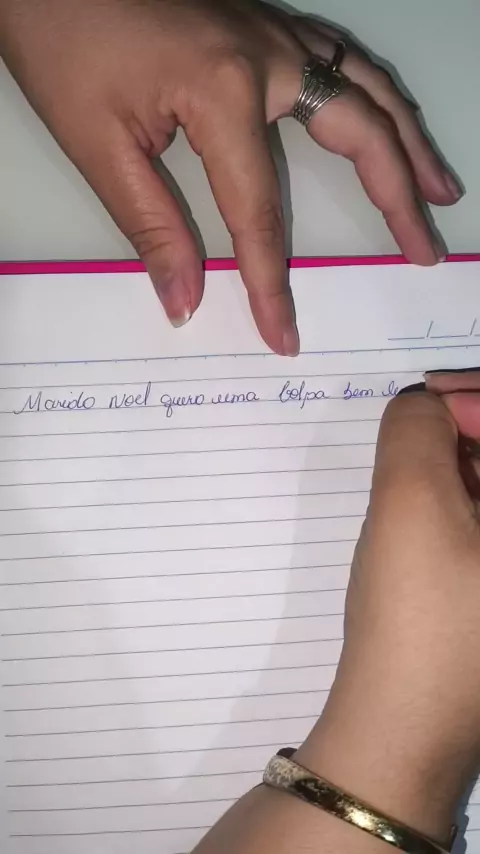 Marido Noel quero uma bolpa bem